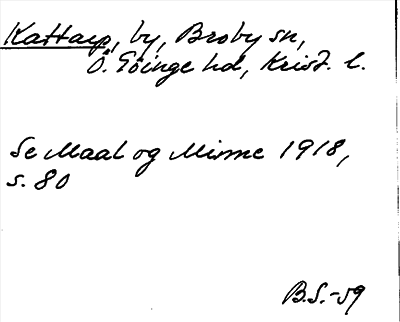 Kattarp, by, Broby sn,
Ö. Göinge hd, Krist. l.
Se Maal og Minne 1918,
s. 80
B.S.-59